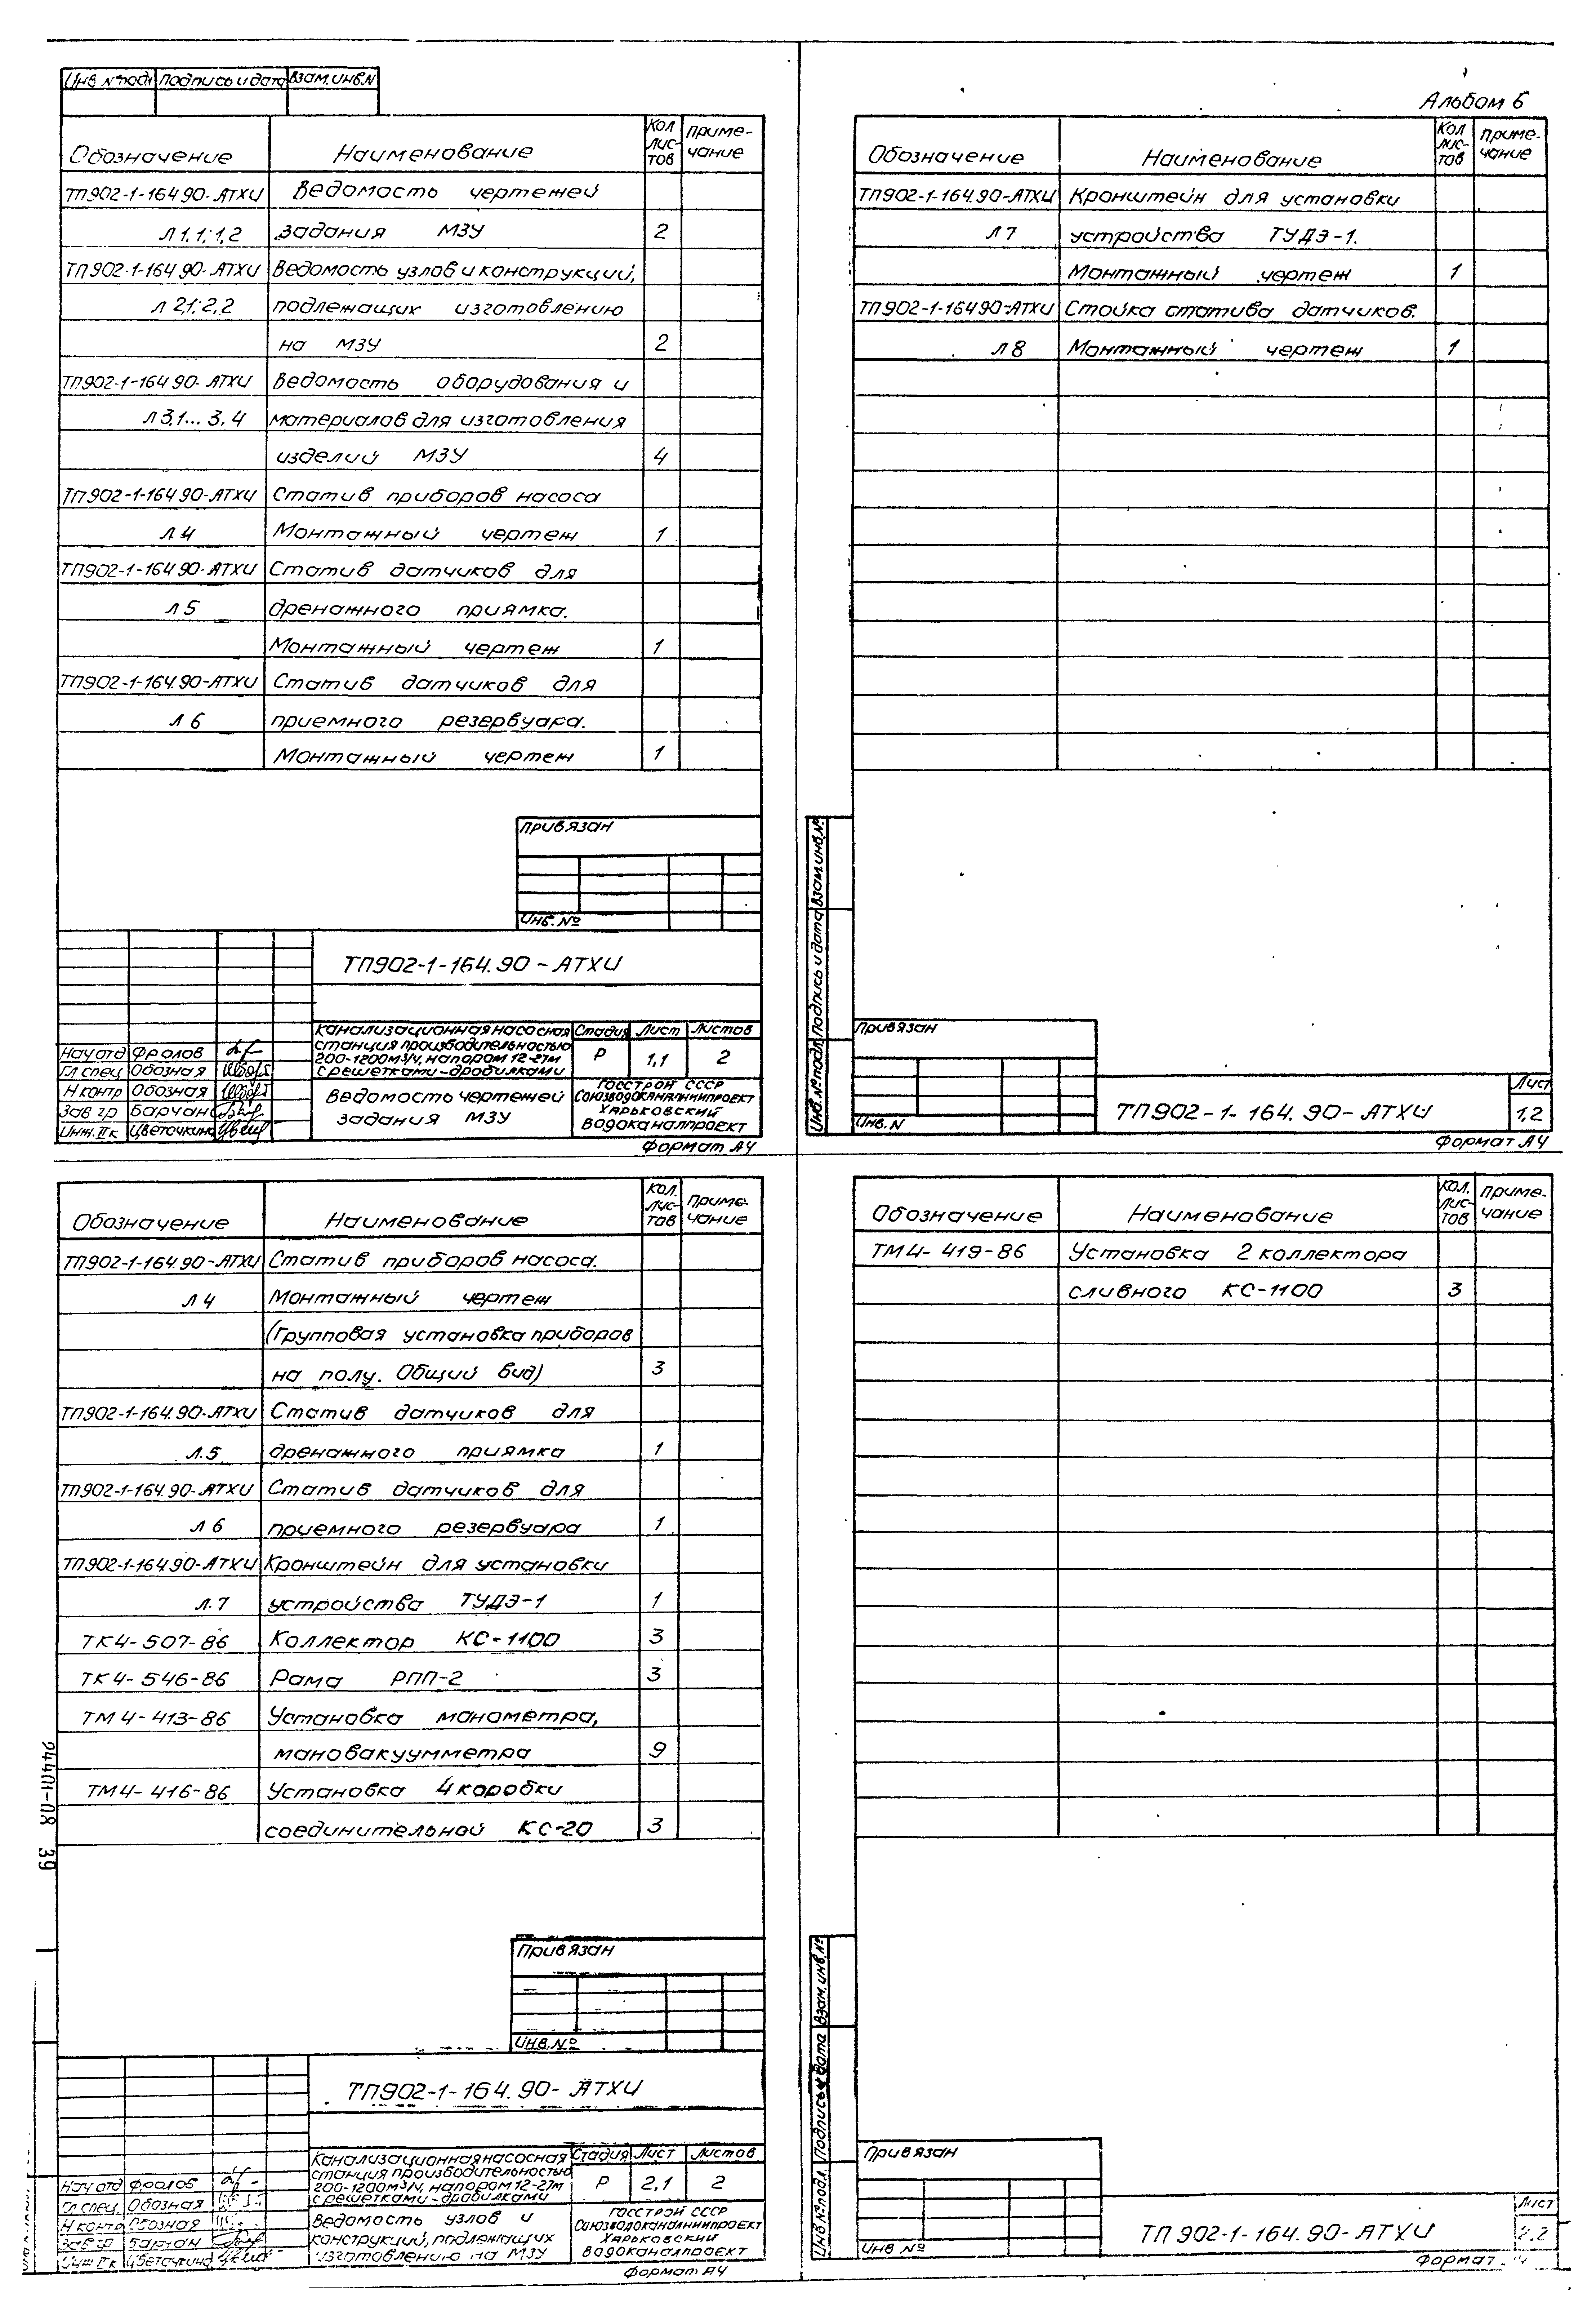 Инв №подл Подпись и дата Взам.инв.N
Обозначение Наименование Кол листов Примечание
ТП902-1-164.90-АТХИ Ведомость чертежей
Л 1,1; 1,2 задания МЗУ 2
ТП902-1-164.90-АТХИ Ведомость узлов и конструкций,
Л 2,1; 2,2 подлежащих изготовлению
на МЗУ 2
ТП902-1-164.90-АТХИ Ведомость оборудования и
Л 3,1... 3,4 материалов для изготовления
изделий МЗУ 4
ТП902-1-164.90-АТХИ Статив приборов насоса
Л.4 Монтажный чертеж 1
ТП902-1-164.90-АТХИ Статив датчиков для
Л 5 дренажного приямка.
Монтажный чертеж 1
ТП902-1-164.90-АТХИ Статив датчиков для
Л 6 приемного резервуара.
Монтажный чертеж 1
Привязан
Инв. №
ТП902-1-164.90-АТХИ
Канализационная насосная
станция производительностью
200-1200м3/ч, напором 12-27м
с решетками-дробилками
Стадия Лист Листов
Р 1,1 2
Нач отд Фролов
Гл спец Обозная
Н контр Обозная
Зав гр
Инж. IIк Цветочкина
Ведомость чертежей
задания МЗУ
ГОССТРОЙ СССР
СОЮЗВОДОКАНАЛНИИПРОЕКТ
Харьковский
Водоканалпроект
Формат А4
Альбом 6
Обозначение Наименование Кол листов Примечание
ТП902-1-164.90-АТХИ Кронштейн для установки
Л 7 устройства ТУДЭ-1.
Монтажный чертеж 1
ТП902-1-164.90-АТХИ Стойка статива датчиков.
Л 8 Монтажный чертеж 1
Инв. № подл Подпись и дата Взам.инв.№
Привязан
Инв. N
ТП902-1-164.90-АТХИ
Лист
1,2
Формат А4
Обозначение Наименование Кол. листов Примечание
ТП902-1-164.90-АТХИ Статив приборов насоса.
Л 4 Монтажный чертеж
(Групповая установка приборов
на полу. Общий вид) 3
ТП902-1-164.90-АТХИ Статив датчиков для
Л.5 дренажного приямка 1
ТП902-1-164.90-АТХИ Статив датчиков для
Л 6 приемного резервуара 1
ТП902-1-164.90-АТХИ Кронштейн для установки
Л.7 устройства ТУДЭ-1 1
ТК4-507-86 Коллектор КС-1100 3
ТК4-546-86 Рама РПП-2 3
ТМ4-413-86 Установка манометра,
мановакуумметра 9
ТМ4-416-86 Установка 4 коробки
соединительной КС-20 3
24401-08 39
Привязан
Инв. №
ТП902-1-164.90-АТХИ
Канализационная насосная
станция производительностью
200-1200м3/ч, напором 12-27м
с решетками-дробилками
Стадия Лист Листов
Р 2,1 2
Нач отд Фролов
Гл спец Обозная
Н контр Обозная
Зав гр
Инж IIк Цветочкина
Ведомость узлов и
конструкций, подлежащих
изготовлению на МЗУ
ГОССТРОЙ СССР
СОЮЗВОДОКАНАЛНИИПРОЕКТ
Харьковский
Водоканалпроект
Формат А4
Обозначение Наименование Кол. листов Примечание
ТМ4-419-86 Установка 2 коллектора
сливного КС-1100 3
Инв № подл. Подпись и дата Взам.инв.№
Привязан
Инв №
ТП 902-1-164.90-АТХИ
Лист
2,2
Формат